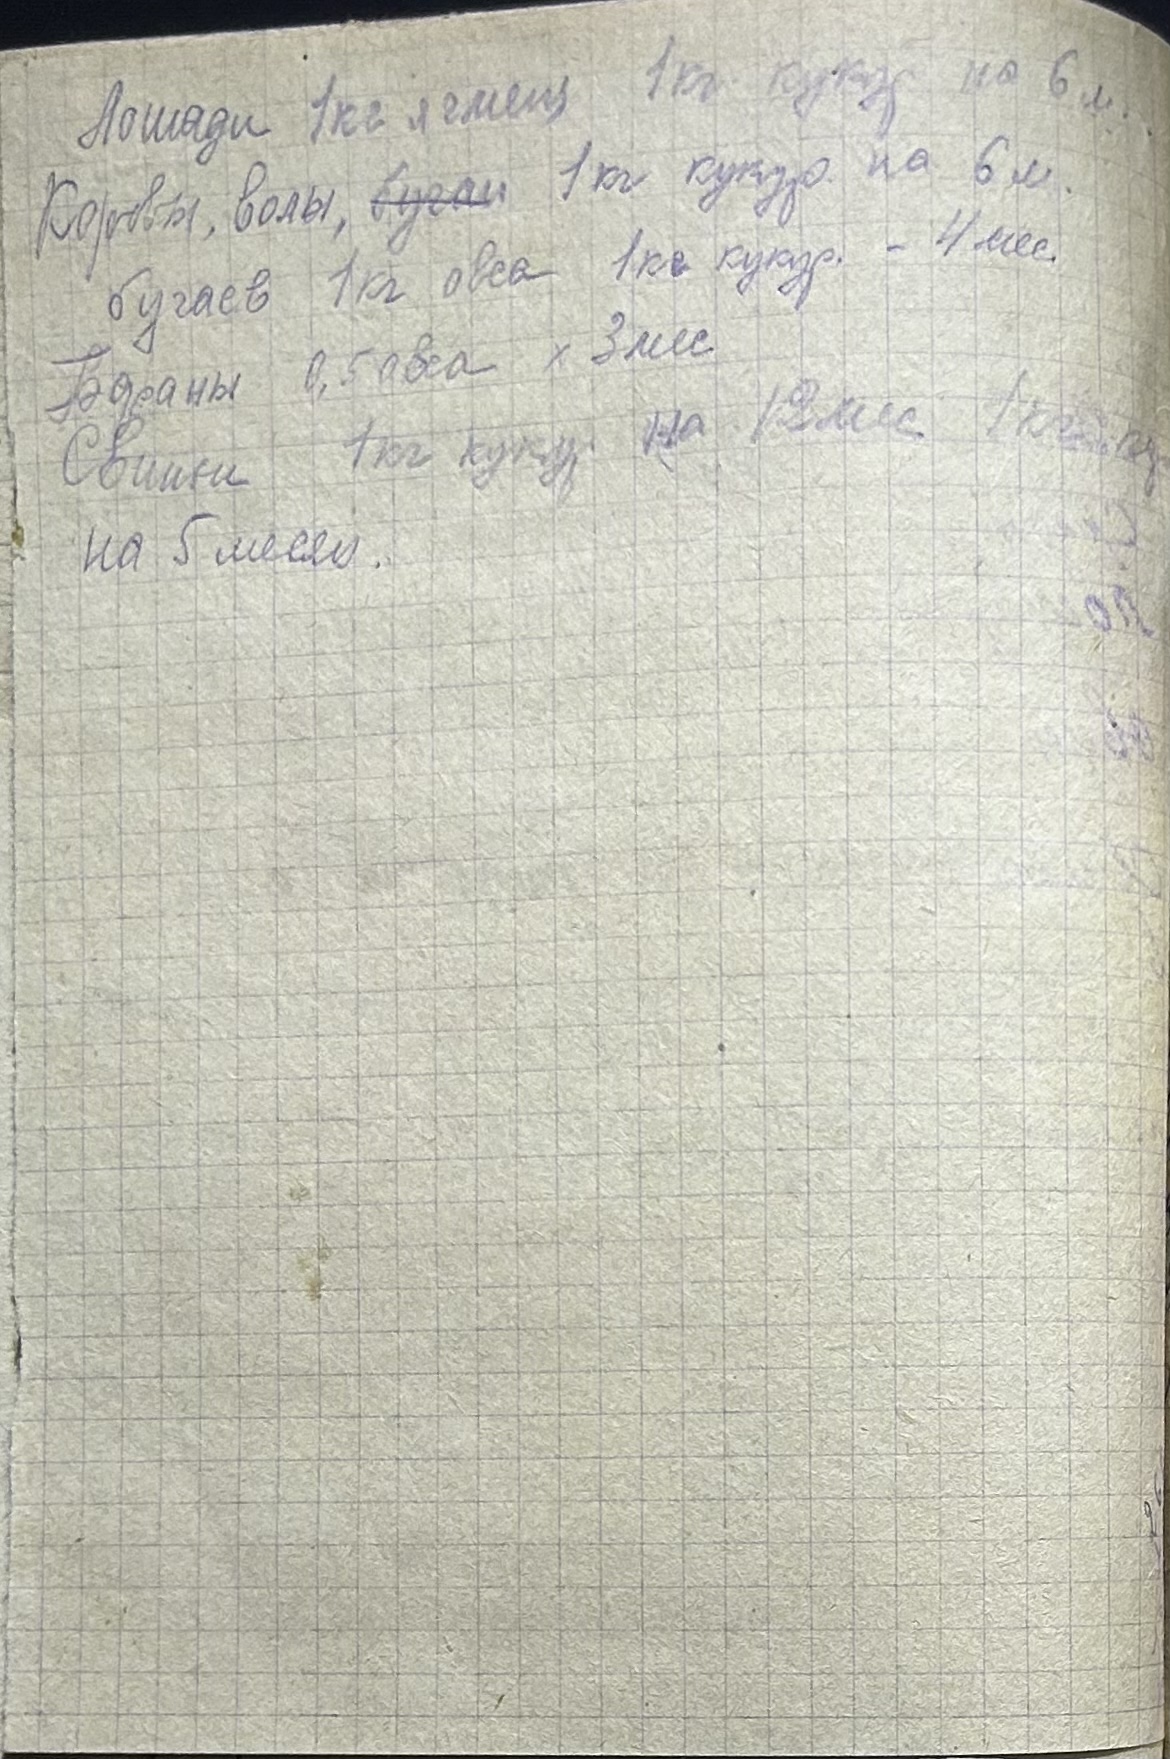 Лошади 1кг ячменя 1кг кукур на 6 м.
Коровы, волы, бугаи 1кг кукур. на 6 м.
бугаев 1кг овса 1кг кукур. - 4 мес.
Бараны 0,5 овса х 3 мес
Свиньи 1кг кукур. на 12 мес 1кг
на 5 месяц.